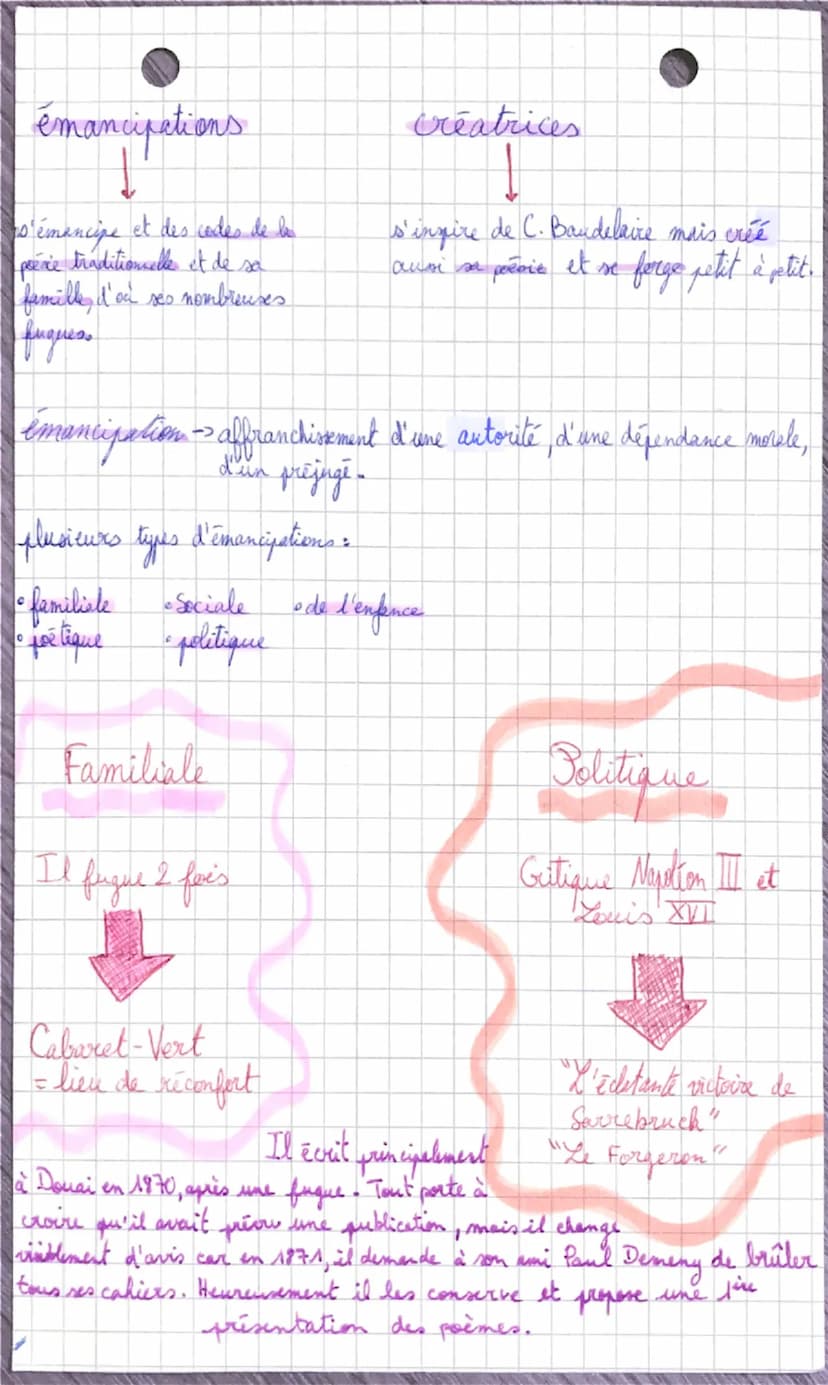 émancipations
créatrices
s'émancipe et des codes de la
poésie traditionnelle et de sa
famille, d'où ses nombreuses
fugues.
s'inspire de C. Baudelaire mais créé
aussi sa poésie et se forge petit à petit.
émancipation -> affranchissement d'une autorité, d'une dépendance morale,
d'un préjugé.
plusieurs types d'émancipations :
• familiale • Sociale • de l'enfance
• poétique • politique
Familiale
Il fugue 2 fois
Cabaret-Vert
= lieu de réconfort
Politique
Critique Napoléon III et
Louis XVI
"L'éclatante victoire de
Sarrebruck"
"Le Forgeron"
Il écrit principalement
à Douai en 1870, après une fugue. Tout porte à
croire qu'il avait prévu une publication, mais il change
visiblement d'avis car en 1871, il demande à son ami Paul Demeny de brûler
tous ses cahiers. Heureusement il les conserve et propose une 1ère
présentation des poèmes.